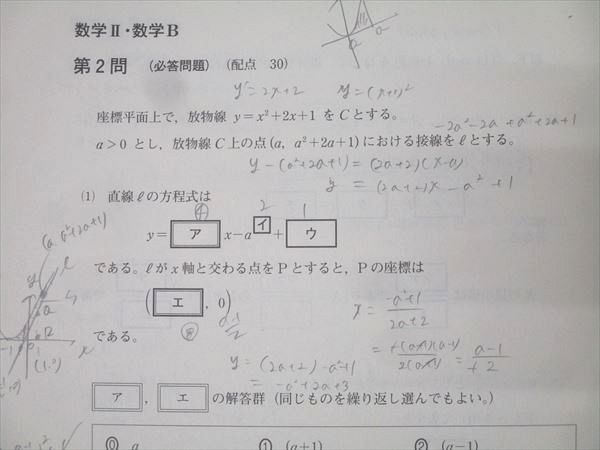 数学Ⅱ・数学B
第2問 (必答問題) (配点 30)
y'=2x+2 y=(x+1)²
座標平面上で,放物線 y=x²+2x+1 を C とする。
-2a²-2a+a²+2a+1
a>0 とし,放物線 C 上の点(a, a²+2a+1)における接線を ℓ とする。
y-(a²+2a+1)=(2a+2)(x-a)
y = (2a+2)x-a²+1
(1) 直線 ℓ の方程式は
④ 2 1
y= ア x-a イ + ウ
(a, a²+2a+1)
である。ℓ が x 軸と交わる点を P とすると,P の座標は
( エ , 0)
x = -a²+1 / 2a+2
⑧ a-1/2
である。
= a-1 / 2
(1,0)
y = (2a+2)-a²+1
= -a²+2a+3
ア , エ の解答群 (同じものを繰り返し選んでもよい。)
⓪ a ① (a+1) ② (a-1)